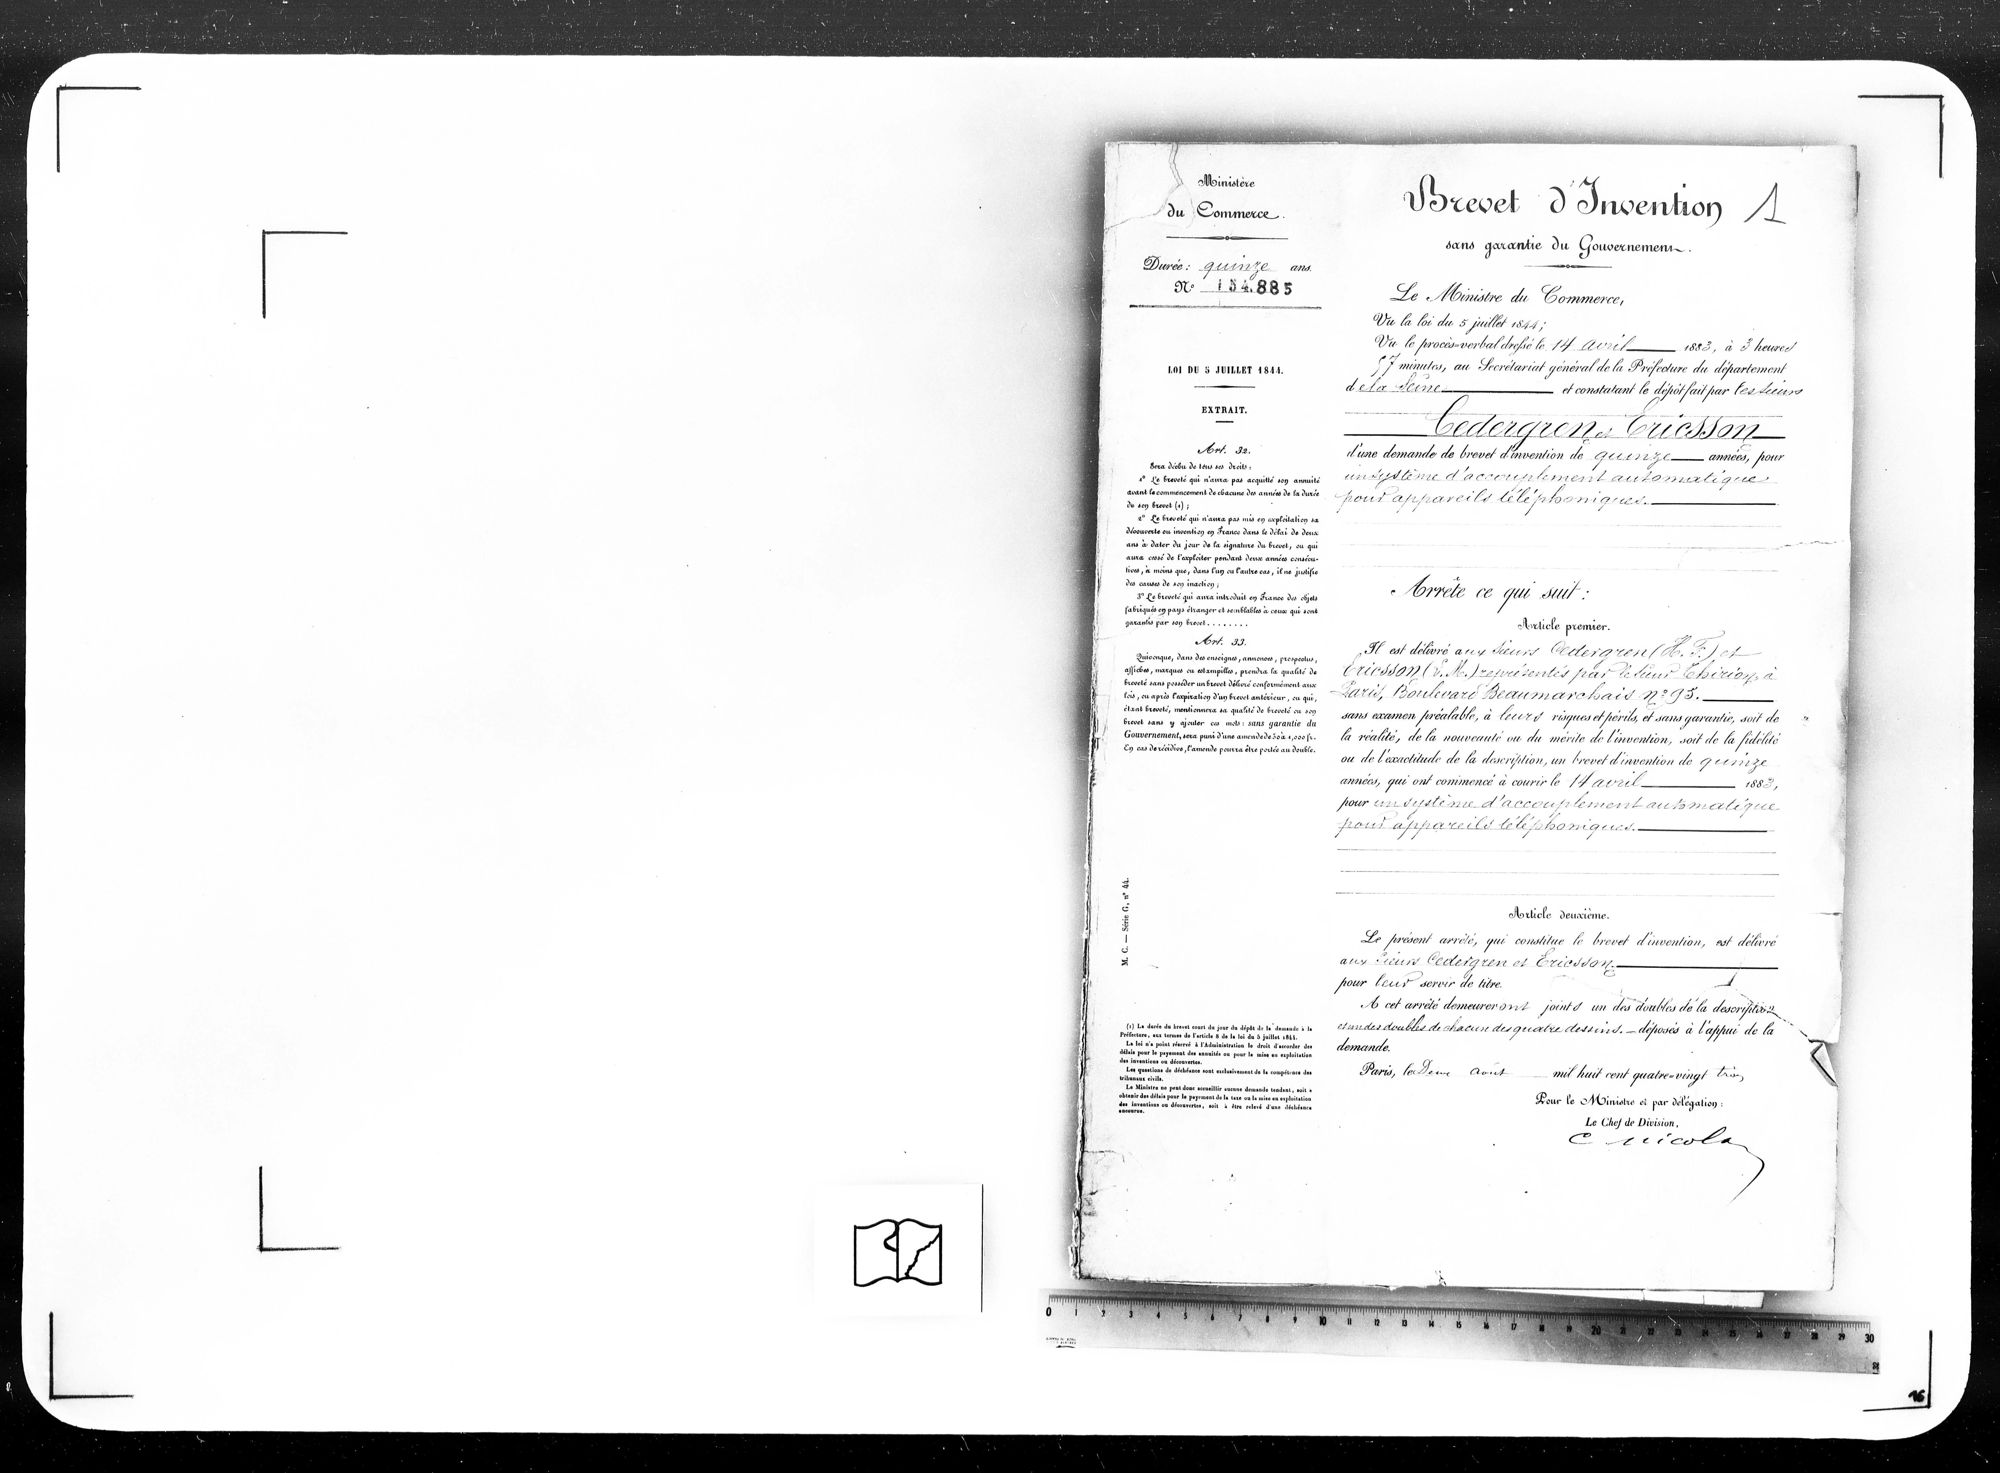 Ministère
du Commerce.
Durée : quinze ans.
N° 154.885
LOI DU 5 JUILLET 1844.
EXTRAIT.
Art. 32.
Sera déchu de tous ses droits :
1° Le breveté qui n'aura pas acquitté son annuité
avant le commencement de chacune des années de la durée
de son brevet (1) ;
2° Le breveté qui n'aura pas mis en exploitation sa
découverte ou invention en France dans le délai de deux
ans à dater du jour de la signature du brevet, ou qui
aura cessé de l'exploiter pendant deux années consécu-
tives, à moins que, dans l'un ou l'autre cas, il ne justifie
des causes de son inaction ;
3° Le breveté qui aura introduit en France des objets
fabriqués en pays étranger et semblables à ceux qui sont
garantis par son brevet........
Art. 33.
Quiconque, dans des enseignes, annonces, prospectus,
affiches, marques ou estampilles, prendra la qualité de
breveté sans posséder un brevet délivré conformément aux
lois, ou après l'expiration d'un brevet antérieur, ou qui,
étant breveté, mentionnera sa qualité de breveté ou son
brevet sans y ajouter ces mots : sans garantie du
Gouvernement, sera puni d'une amende de 50 à 1,000 fr.
En cas de récidive, l'amende pourra être portée au double.
M. C. — Série G, n° 44.
(1) La durée du brevet court du jour du dépôt de la demande à la
Préfecture, aux termes de l'article 8 de la loi du 5 juillet 1844.
La loi n'a point réservé à l'Administration le droit d'accorder des
délais pour le payement des annuités ou pour la mise en exploitation
des inventions ou découvertes.
Les questions de déchéance sont exclusivement de la compétence des
tribunaux civils.
Le Ministre ne peut donc accueillir aucune demande tendant, soit à
obtenir des délais pour le payement de la taxe ou la mise en exploitation
des inventions ou découvertes, soit à être relevé d'une déchéance
encourue.
Brevet d'Invention 1
sans garantie du Gouvernement.
Le Ministre du Commerce,
Vu la loi du 5 juillet 1844 ;
Vu le procès-verbal dressé le 14 avril 1883, à 3 heures
57 minutes, au Secrétariat général de la Préfecture du département
de la Seine et constatant le dépôt fait par les sieurs
Cedergren et Ericsson
d'une demande de brevet d'invention de quinze années, pour
un système d'accouplement automatique
pour appareils téléphoniques.
Arrête ce qui suit :
Article premier.
Il est délivré aux sieurs Cedergren (H. T.) et
Ericsson (L. M.) représentés par le sieur Thirion, à
Paris, Boulevard Beaumarchais n° 95.
sans examen préalable, à leurs risques et périls, et sans garantie, soit de
la réalité, de la nouveauté ou du mérite de l'invention, soit de la fidélité
ou de l'exactitude de la description, un brevet d'invention de quinze
années, qui ont commencé à courir le 14 avril 1883,
pour un système d'accouplement automatique
pour appareils téléphoniques.
Article deuxième.
Le présent arrêté, qui constitue le brevet d'invention, est délivré
aux sieurs Cedergren et Ericsson.
pour leur servir de titre.
A cet arrêté demeureront joints un des doubles de la description
et un des doubles de chacun des quatre dessins. — déposés à l'appui de la
demande.
Paris, le Deux août mil huit cent quatre-vingt trois
Pour le Ministre et par délégation :
Le Chef de Division,
0 1 2 3 4 5 6 7 8 9 10 11 12 13 14 15 16 17 18 19 20 21 22 23 24 25 26 27 28 29 30
16